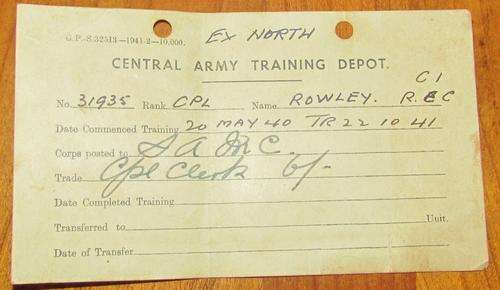 G.P.-S.32513—1941-2—10,000. EX NORTH
CENTRAL ARMY TRAINING DEPOT.
C1
No. 31935 Rank CPL Name ROWLEY. R.E C
Date Commenced Training 20 MAY 40 TR 22 10 41
Corps posted to S A M C.
Trade Cpl Clerk 6/-
Date Completed Training
Transferred to Unit.
Date of Transfer